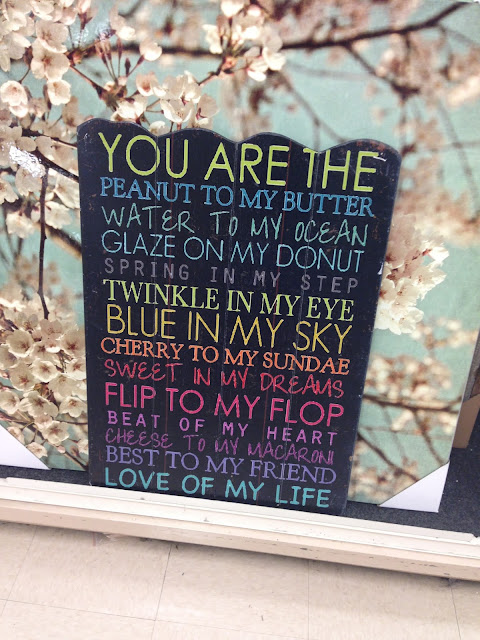 YOU ARE THE
PEANUT TO MY BUTTER
WATER TO MY OCEAN
GLAZE ON MY DONUT
SPRING IN MY STEP
TWINKLE IN MY EYE
BLUE IN MY SKY
CHERRY TO MY SUNDAE
SWEET IN MY DREAMS
FLIP TO MY FLOP
BEAT OF MY HEART
CHEESE TO MY MACARONI
BEST TO MY FRIEND
LOVE OF MY LIFE